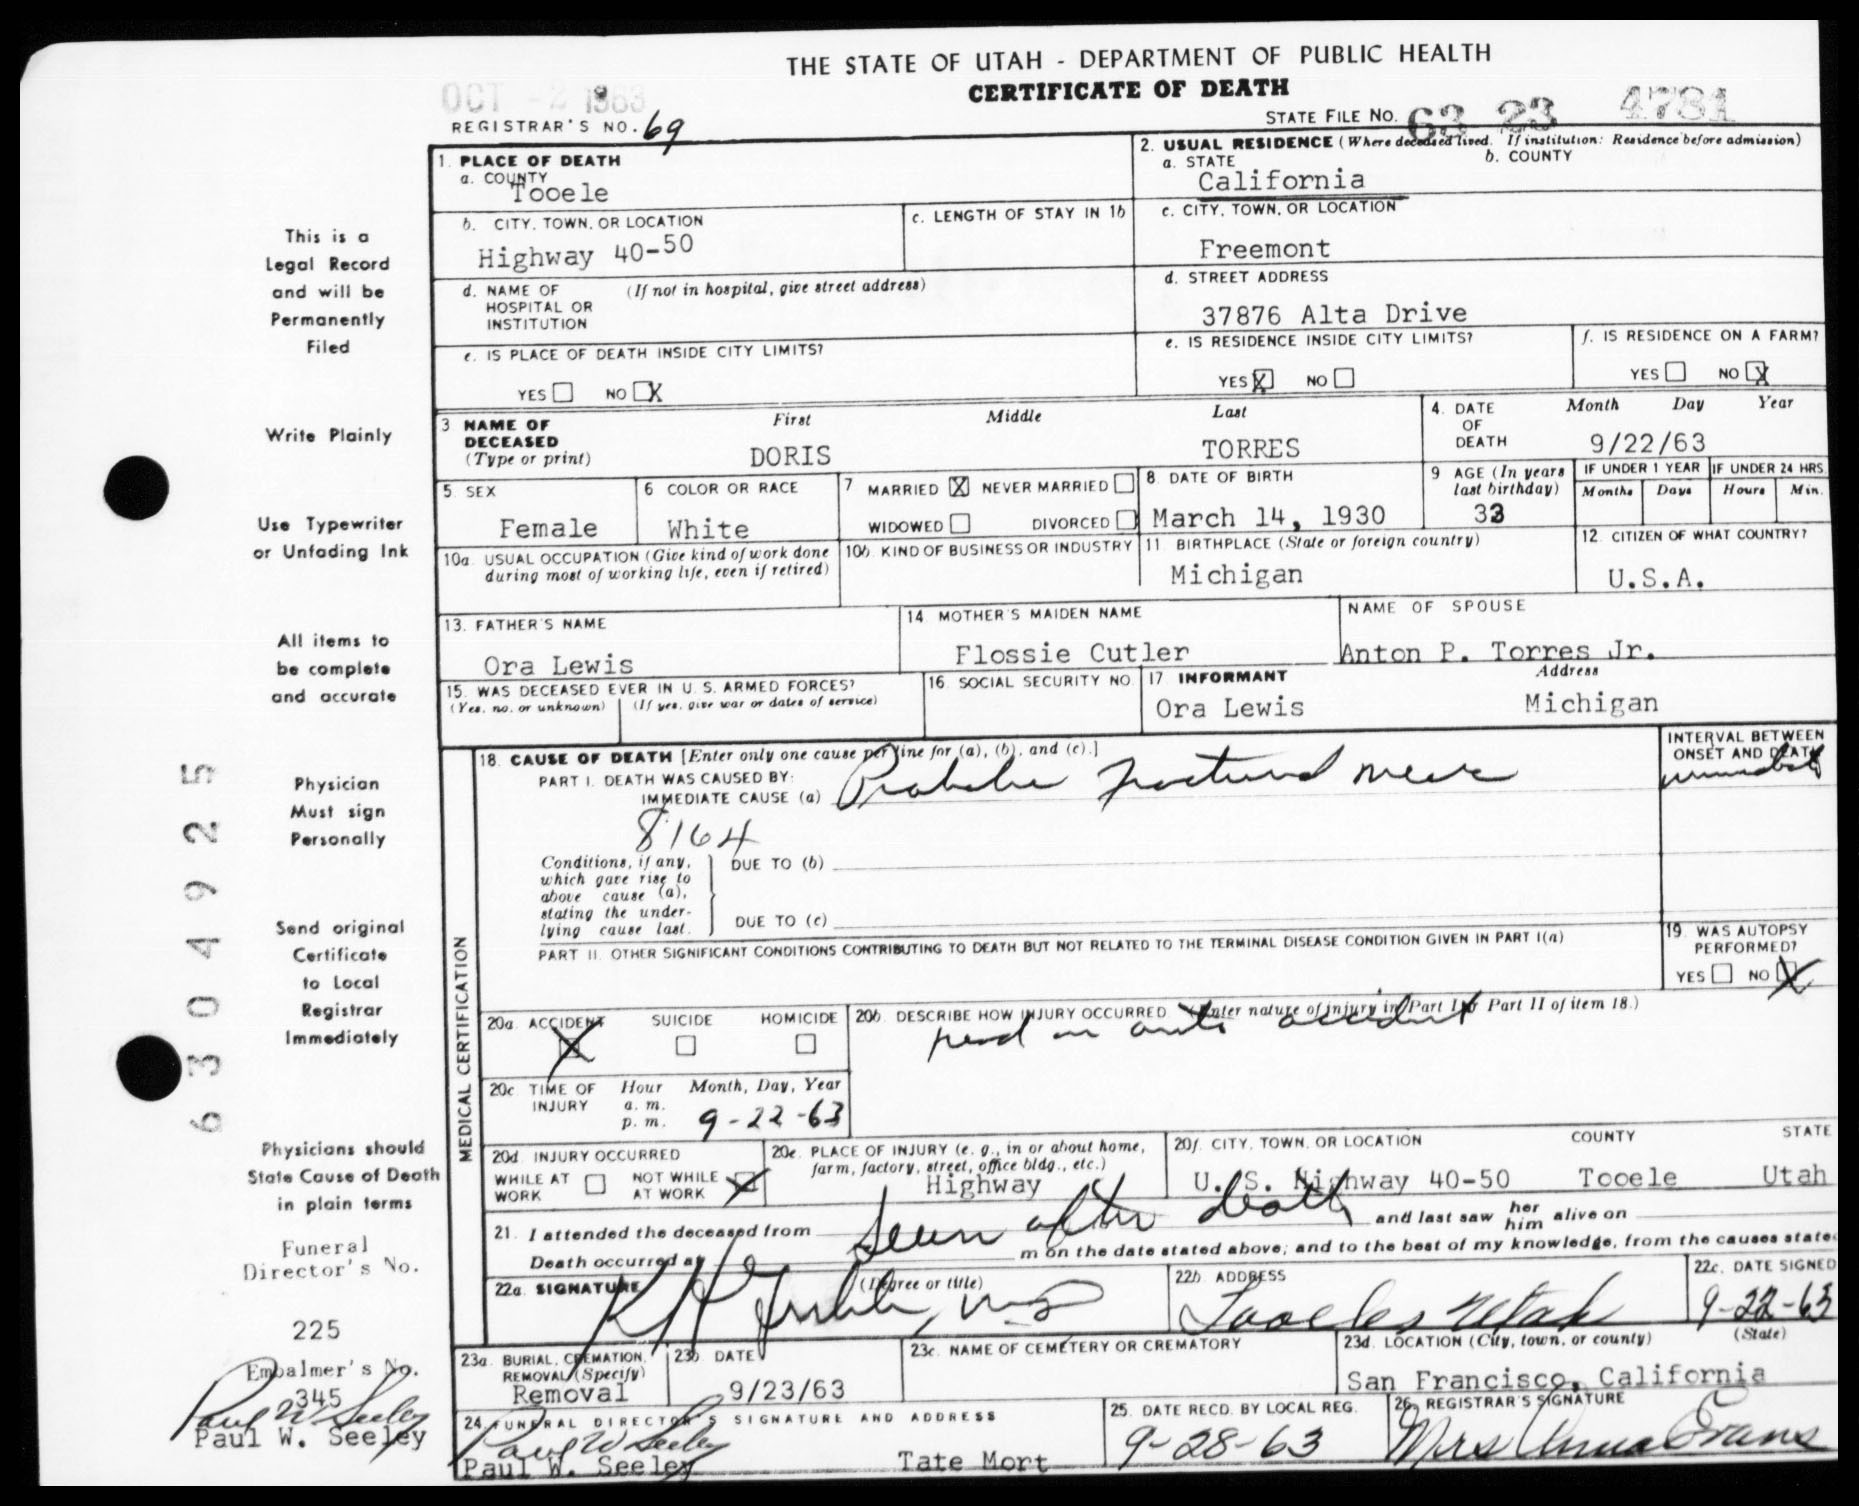 THE STATE OF UTAH - DEPARTMENT OF PUBLIC HEALTH
CERTIFICATE OF DEATH
OCT - 2 1963
REGISTRAR'S NO. 69
STATE FILE NO. 63 23 4781
1. PLACE OF DEATH
a. COUNTY
Tooele
2. USUAL RESIDENCE (Where deceased lived. If institution: Residence before admission)
a. STATE b. COUNTY
California
b. CITY, TOWN, OR LOCATION
Highway 40-50
c. LENGTH OF STAY IN 1b
c. CITY, TOWN, OR LOCATION
Freemont
d. NAME OF HOSPITAL OR INSTITUTION (If not in hospital, give street address)
d. STREET ADDRESS
37876 Alta Drive
e. IS PLACE OF DEATH INSIDE CITY LIMITS?
YES NO X
e. IS RESIDENCE INSIDE CITY LIMITS?
YES X NO
f. IS RESIDENCE ON A FARM?
YES NO X
3 NAME OF DECEASED (Type or print)
First Middle Last
DORIS TORRES
4. DATE OF DEATH
Month Day Year
9/22/63
5. SEX
Female
6 COLOR OR RACE
White
7 MARRIED X NEVER MARRIED
WIDOWED DIVORCED
8. DATE OF BIRTH
March 14, 1930
9 AGE (In years last birthday)
33
IF UNDER 1 YEAR IF UNDER 24 HRS.
Months Days Hours Min.
10a. USUAL OCCUPATION (Give kind of work done during most of working life, even if retired)
10b. KIND OF BUSINESS OR INDUSTRY
11. BIRTHPLACE (State or foreign country)
Michigan
12. CITIZEN OF WHAT COUNTRY?
U.S.A.
13. FATHER'S NAME
Ora Lewis
14 MOTHER'S MAIDEN NAME
Flossie Cutler
NAME OF SPOUSE
Anton P. Torres Jr.
15. WAS DECEASED EVER IN U. S. ARMED FORCES?
(Yes, no, or unknown) (If yes, give war or dates of service)
16. SOCIAL SECURITY NO.
17 INFORMANT Address
Ora Lewis Michigan
MEDICAL CERTIFICATION
18. CAUSE OF DEATH [Enter only one cause per line for (a), (b), and (c).]
PART I. DEATH WAS CAUSED BY:
IMMEDIATE CAUSE (a) Probable fractured neck
INTERVAL BETWEEN ONSET AND DEATH
immediate
8164
Conditions, if any, which gave rise to above cause (a), stating the underlying cause last.
DUE TO (b)
DUE TO (c)
PART II. OTHER SIGNIFICANT CONDITIONS CONTRIBUTING TO DEATH BUT NOT RELATED TO THE TERMINAL DISEASE CONDITION GIVEN IN PART I(a)
19. WAS AUTOPSY PERFORMED?
YES NO X
20a. ACCIDENT SUICIDE HOMICIDE
X
20b. DESCRIBE HOW INJURY OCCURRED. (Enter nature of injury in Part I or Part II of item 18.)
head on auto accident
20c TIME OF INJURY Hour Month, Day, Year
a. m.
p. m. 9-22-63
20d. INJURY OCCURRED
WHILE AT WORK NOT WHILE AT WORK X
20e. PLACE OF INJURY (e. g., in or about home, farm, factory, street, office bldg., etc.)
Highway
20f. CITY, TOWN, OR LOCATION COUNTY STATE
U. S. Highway 40-50 Tooele Utah
21. I attended the deceased from seen after death and last saw her him alive on
Death occurred at m on the date stated above; and to the best of my knowledge, from the causes state
22a. SIGNATURE (Degree or title)
22b. ADDRESS
Tooele Utah
22c. DATE SIGNED
9-22-63
23a. BURIAL, CREMATION, REMOVAL (Specify)
Removal
23b DATE
9/23/63
23c. NAME OF CEMETERY OR CREMATORY
23d. LOCATION (City, town, or county) (State)
San Francisco, California
24 FUNERAL DIRECTOR'S SIGNATURE AND ADDRESS
Paul W Seeley
Paul W. Seeley Tate Mort
25. DATE RECD. BY LOCAL REG.
9-28-63
26. REGISTRAR'S SIGNATURE
Mrs Anna Evans
This is a
Legal Record
and will be
Permanently
Filed
Write Plainly
Use Typewriter
or Unfading Ink
All items to
be complete
and accurate
Physician
Must sign
Personally
Send original
Certificate
to Local
Registrar
Immediately
Physicians should
State Cause of Death
in plain terms
Funeral
Director's No.
225
Embalmer's No.
345
Paul W Seeley
Paul W. Seeley
6304925